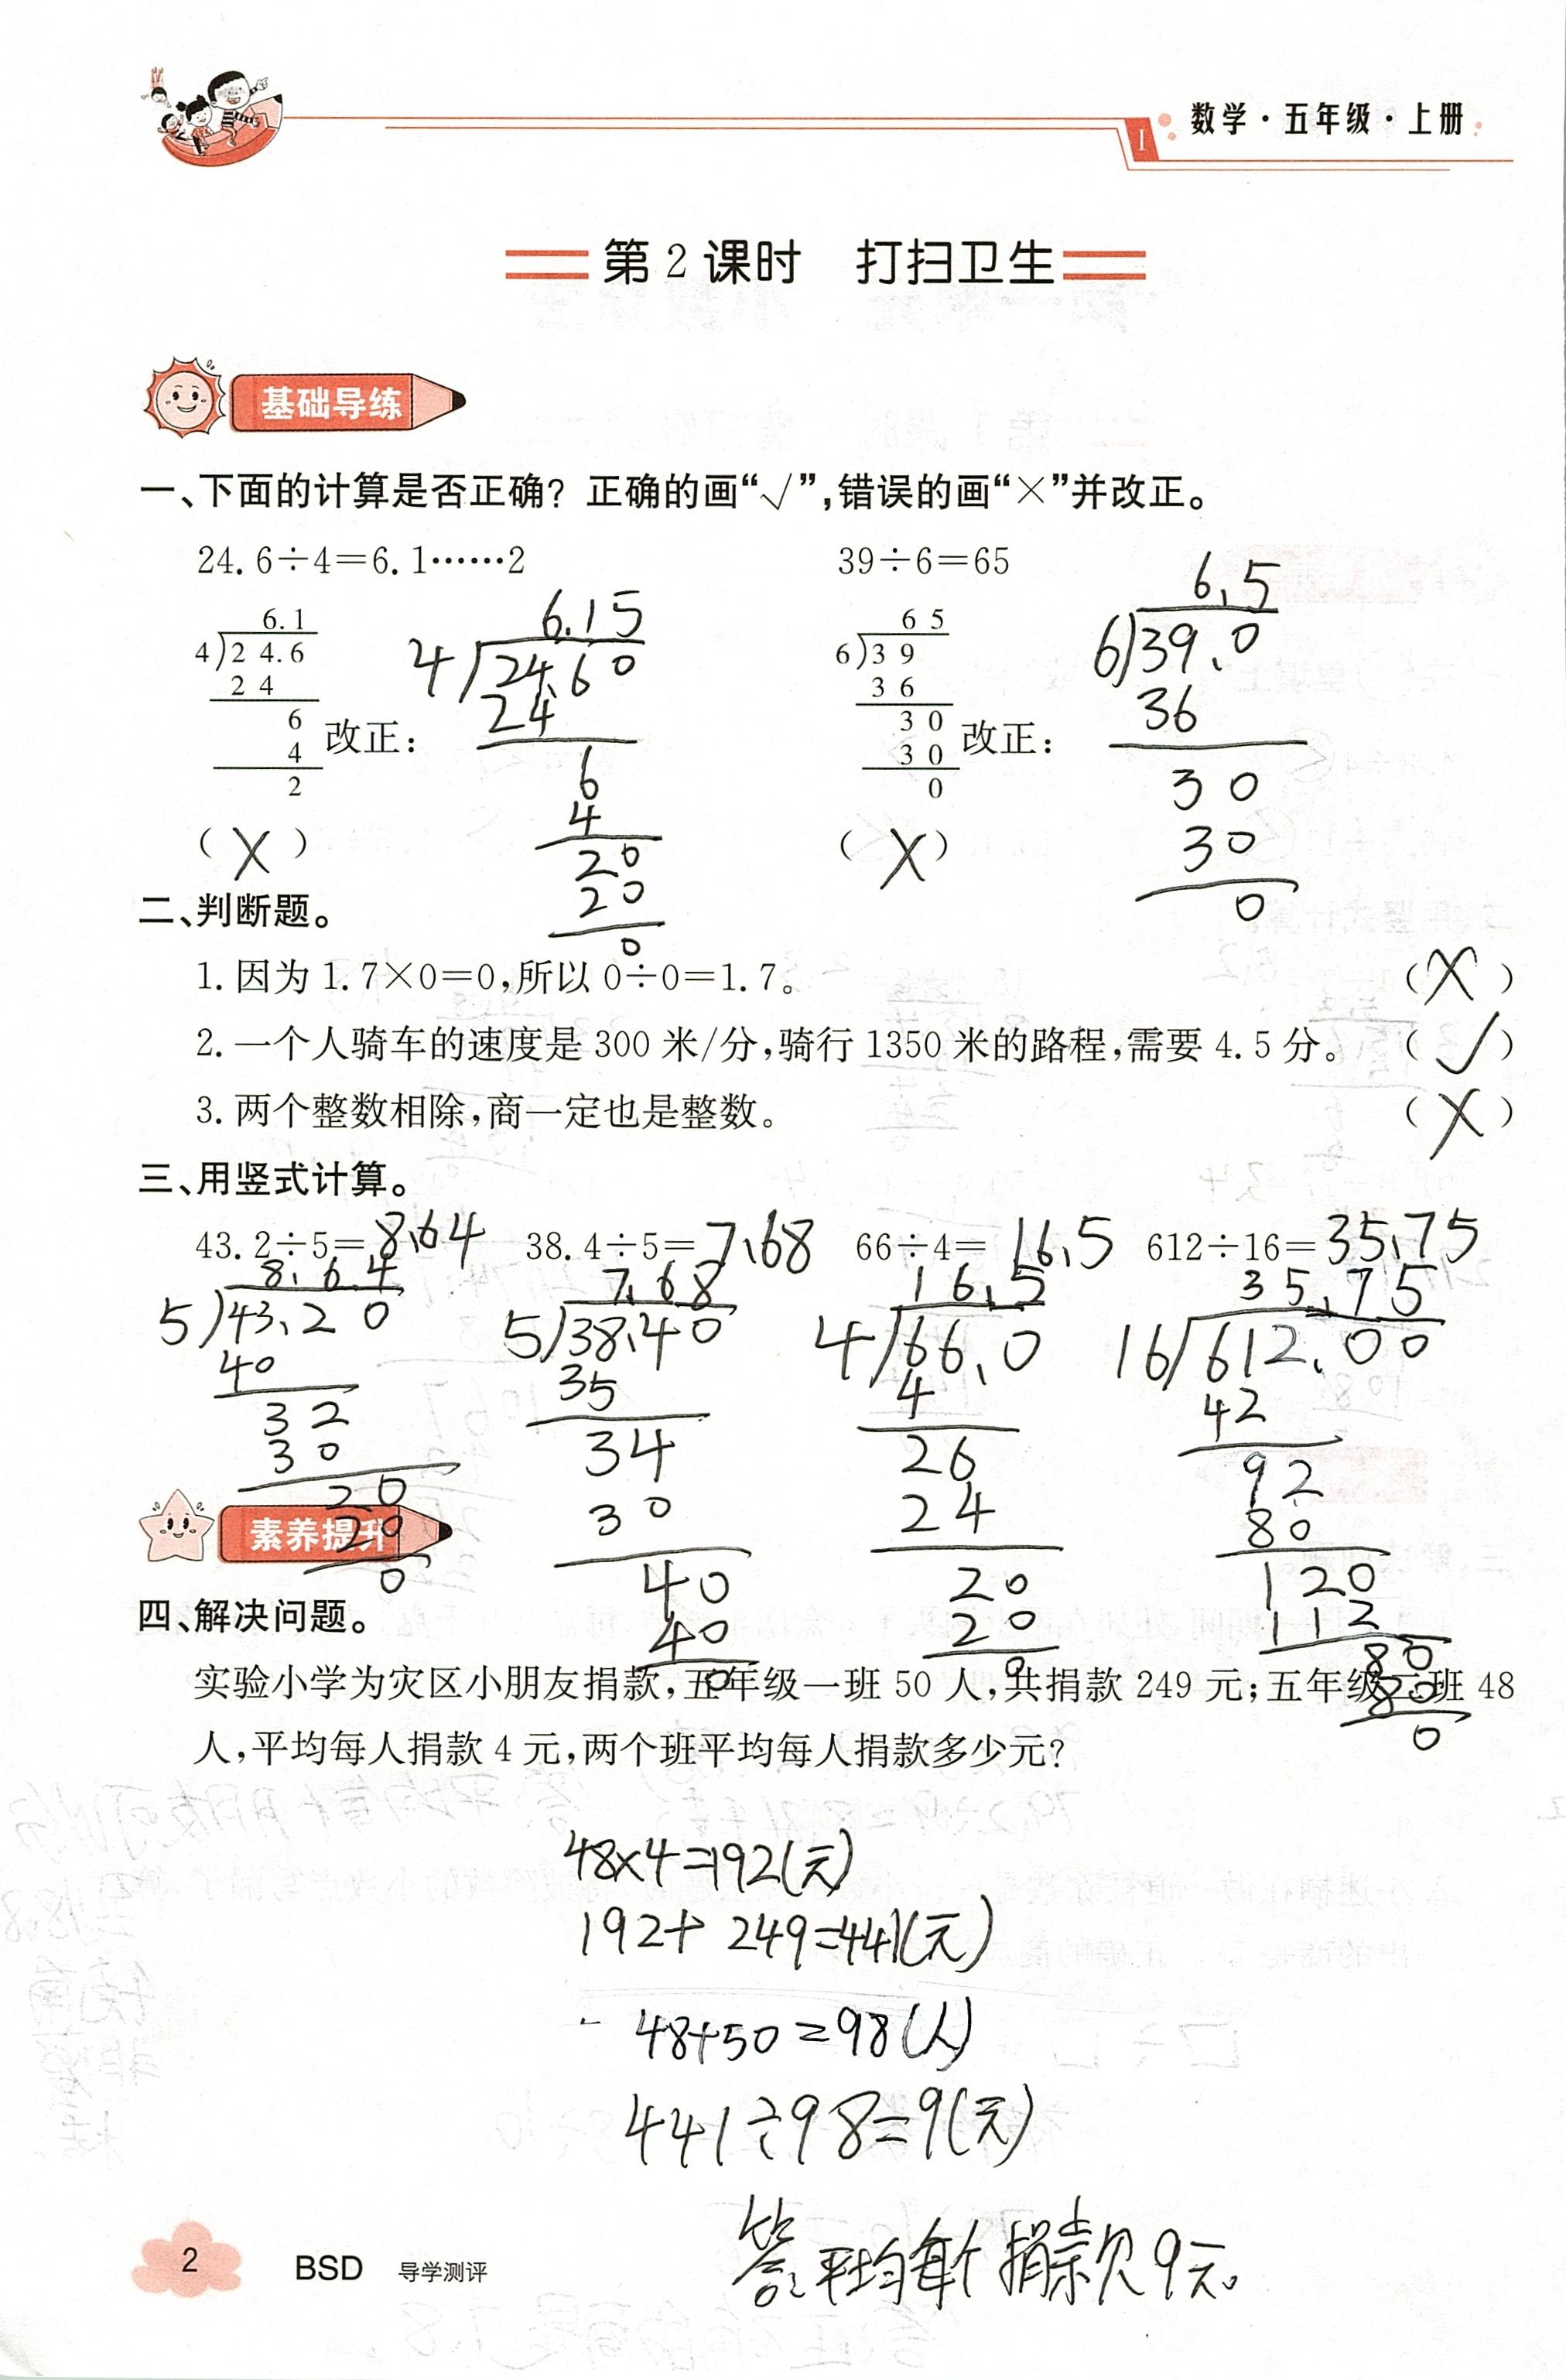 数学·五年级·上册
第2课时 打扫卫生
基础导练
一、下面的计算是否正确？正确的画“√”，错误的画“×”并改正。
24.6÷4=6.1……2 39÷6=65
6.1
4)24.6
24
6
4
2
改正：
6.15
4)24.60
24
6
4
20
20
0
65
6)39
36
30
30
0
改正：
6.5
6)39.0
36
30
30
0
（×） （×）
二、判断题。
1.因为1.7×0=0，所以0÷0=1.7。 （×）
2.一个人骑车的速度是300米/分，骑行1350米的路程，需要4.5分。 （√）
3.两个整数相除，商一定也是整数。 （×）
三、用竖式计算。
43.2÷5=8.64 38.4÷5=7.68 66÷4=16.5 612÷16=35.75
8.64
5)43.20
40
32
30
20
20
0
7.68
5)38.40
35
34
30
40
40
0
16.5
4)66.0
4
26
24
20
20
0
35.75
16)612.00
42
92
80
120
112
80
80
0
素养提升
四、解决问题。
实验小学为灾区小朋友捐款，五年级一班50人，共捐款249元；五年级二班48
人，平均每人捐款4元，两个班平均每人捐款多少元？
48×4=192(元)
192+249=441(元)
48+50=98(人)
441÷98=9(元)
答：平均每个捐款9元。
2 BSD 导学测评